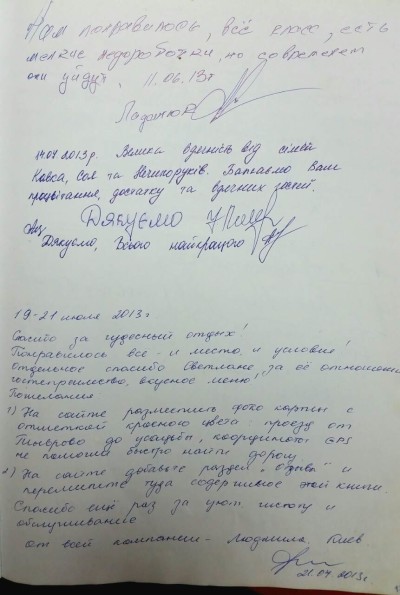 Нам понравилось, всё класс, есть
мелкие недоработки, но со временем
они уйдут. 11.06.13г
14.07.2013р. Велика вдячність від сімей
Кавка, Соя та Нечипоруків. Бажаємо Вам
процвітання, достатку та вдячних гостей.
Дякуємо
Дякуємо, Всього найкращого
19-21 июля 2013г
Спасибо за чудесный отдых!
Понравилось все - и место, и условия!
Отдельное спасибо Светлане, за её отношение
гостеприимство, вкусное меню,
Пожелания
1) На сайте разместить фото карты с
отметкой красного цвета: проезд от
до усадьбы, координаты GPS
не помогли быстро найти дорогу
2) На сайте добавьте раздел "Отзывы" и
перепишите туда содержимое этой книги.
Спасибо ещё раз за уют чистоту и
обслуживание
от всей компании - Людмила. Киев
21.07.2013г.